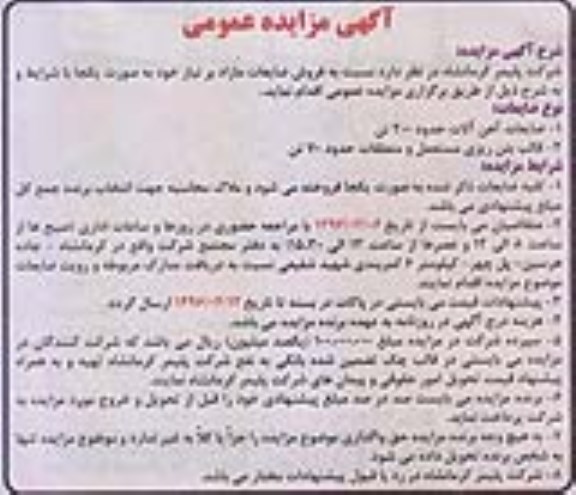 آگهی مزایده عمومی
شرح آگهی مزایده:
شرکت پلیمر کرمانشاه در نظر دارد نسبت به فروش ضایعات مازاد بر نیاز خود به صورت یکجا با شرایط و
به شرح ذیل از طریق برگزاری مزایده عمومی اقدام نماید.
نوع ضایعات:
۱- ضایعات آهن آلات حدود تن
۲- قالب بتن ریزی مستعمل و متعلقات حدود تن
شرایط مزایده:
۱- کلیه ضایعات ذکر شده به صورت یکجا فروخته می شود و ملاک محاسبه جهت انتخاب برنده جمع کل
مبلغ پیشنهادی می باشد.
۲- متقاضیان می بایست از تاریخ با مراجعه حضوری در روزها و ساعات اداری (صبح ها از
ساعت ۸ الی ۱۲ و عصرها از ساعت ۱۳ الی ۱۵:۳۰) به دفتر مجتمع شرکت واقع در کرمانشاه - جاده
هرسین- پل چهر- کیلومتر ۶ کمربندی شهید شفیعی نسبت به دریافت مدارک مربوطه و رویت ضایعات
موضوع مزایده اقدام نمایند.
۳- پیشنهادات قیمت می بایستی در پاکت در بسته تا تاریخ ارسال گردد.
۴- هزینه درج آگهی در روزنامه به عهده برنده مزایده می باشد.
۵- سپرده شرکت در مزایده مبلغ (یکصد میلیون) ریال می باشد که شرکت کنندگان در
مزایده می بایستی در قالب چک تضمین شده بانکی به نفع شرکت پلیمر کرمانشاه تهیه و به همراه
پیشنهاد قیمت تحویل امور حقوقی و پیمان های شرکت پلیمر کرمانشاه نمایند.
۶- برنده مزایده می بایست صد در صد مبلغ پیشنهادی خود را قبل از تحویل و خروج مورد مزایده به
شرکت پرداخت نماید.
۷- به هیچ وجه برنده مزایده حق واگذاری موضوع مزایده را جزاً یا کلاً به غیر ندارد و موضوع مزایده تنها
به شخص برنده تحویل داده می شود.
۸- شرکت پلیمر کرمانشاه در رد یا قبول پیشنهادات مختار می باشد.